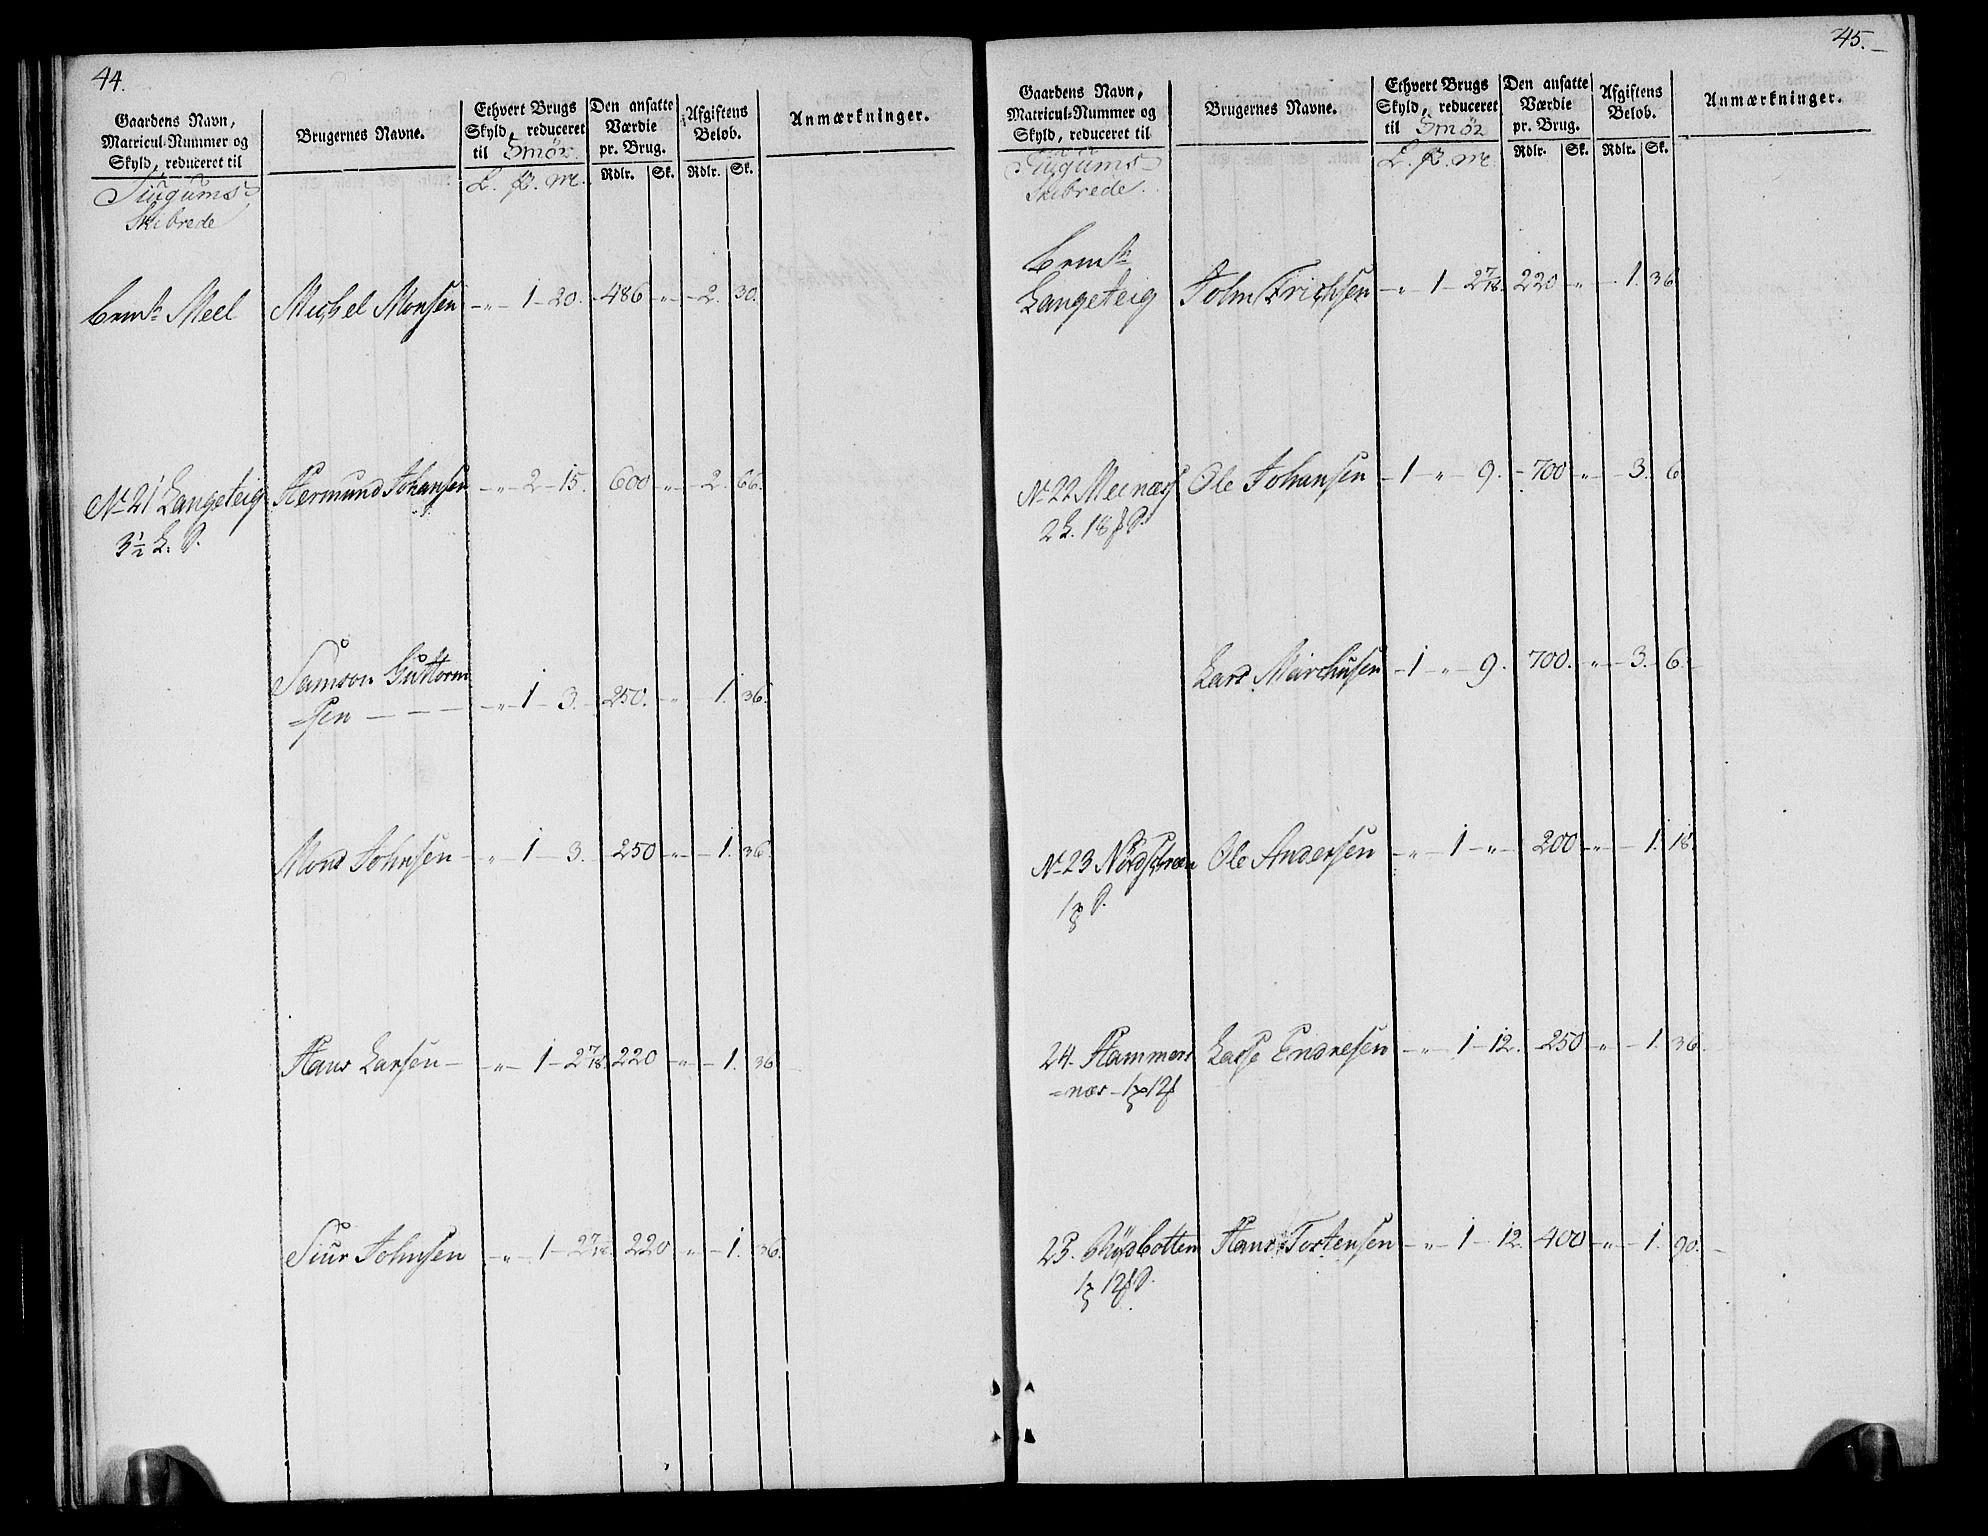 44.
Gaardens Navn, Matricul-Nummer og Skyld, reduceret til
Brugernes Navne.
Ethvert Brugs Skyld, reduceret til Smör.
Den ansatte Værdie pr. Brug.
Afgiftens Belob.
Anmærkninger.
Rdlr. Sk. Rdlr. Sk.
Skibrede
Meel Michel Monsen - „ - 1 - 20. 486 „ - 2. 30.
No 21 Langeteig Hermund Johansen - „ - 2 - 15. 600 „ - 2. 66.
3½ L. S.
Samson Guttorm
=sen - „ - 1 - 3. 250. „ 1. 36.
Mons Johnsen - „ - 1 - 3. 250 „ - 1. 36.
Hans Larsen - „ - 1 - 2 7/18. 220 „ - 1. 36
Siur Johnsen - „ - 1 - 2 7/18. 220 „ - 1. 36.
45.
Gaardens Navn, Matricul-Nummer og Skyld, reduceret til
Brugernes Navne.
Ethvert Brugs Skyld, reduceret til Smör
Den ansatte Værdie pr. Brug.
Afgiftens Belob.
Anmærkninger.
Rdlr. Sk. Rdlr. Sk.
Skibrede.
Langeteig John Erichsen - „ - 1 - 2 7/18. 220 „ - 1. 36
No 22 Ole Johansen - 1 „ - 9. - 700 „ - 3. 6
2 L. 18
Lars - 1 „ - 9. 700. „ - 3. 6.
No 23 Ole Andersen - „ - 1 - „ 200 „ - 1. 18.
24. Hammers
=næs Endresen - „ - 1 - 12. 250 „ - 1. 36.
25. Hans Tostensen - „ - 1 - 12. 400 - „ - 1. 90.